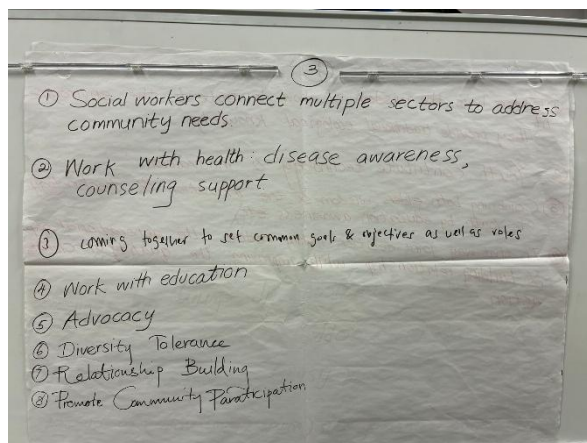 ③
① Social workers connect multiple sectors to address
community needs
② Work with health: disease awareness,
counseling support
③ coming together to set common goals & objectives as well as roles
④ Work with education
⑤ Advocacy
⑥ Diversity Tolerance
⑦ Relationship Building
⑧ Promote Community Paraticipation